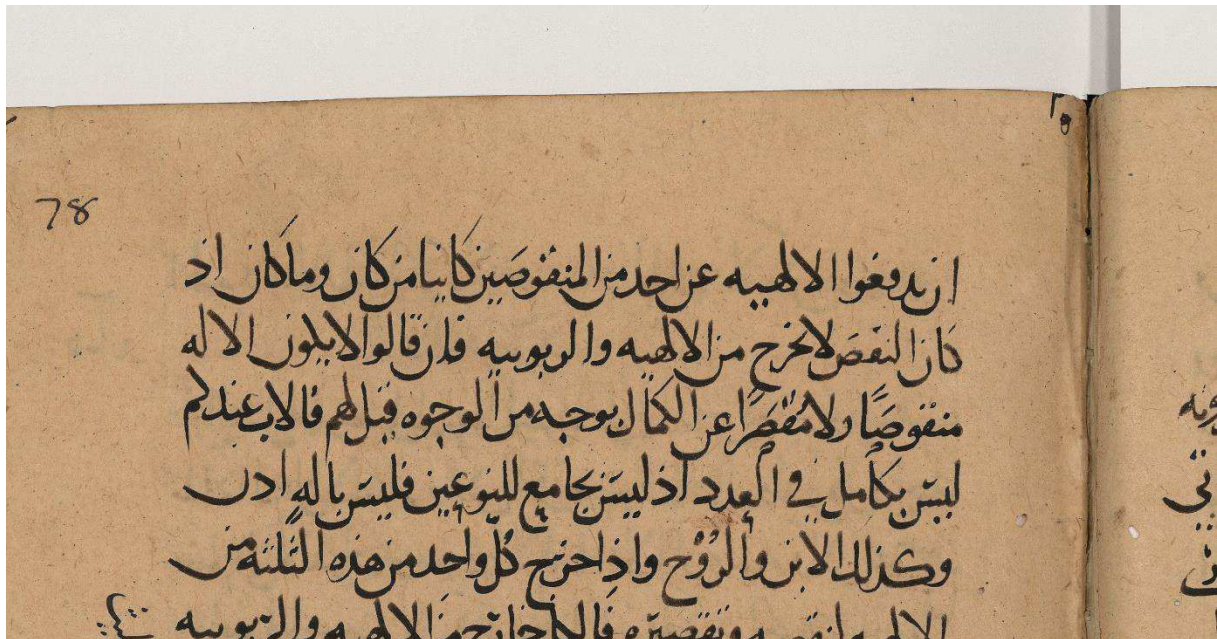 78
ان يدفعوا الالهيه عن احد من المنقوصين كاينا من كان وما كان اذ
كان النقص لا يخرج من الالهيه والربوبيه فان قالوا لا يكون الاله
منقوصًا ولا مقصرًا عن الكمال بوجه من الوجوه قيل لهم فالاب عندكم
ليس بكامل في العدد اذ ليس بجامع للنوعين فليس باله اذن
وكذلك الابن والرُوْح واذا خرج كلّ واحد من هذه الثلثه من
الالهيه لنقصه وتقصيره فالكل خارج من الالهيه والربوبيه